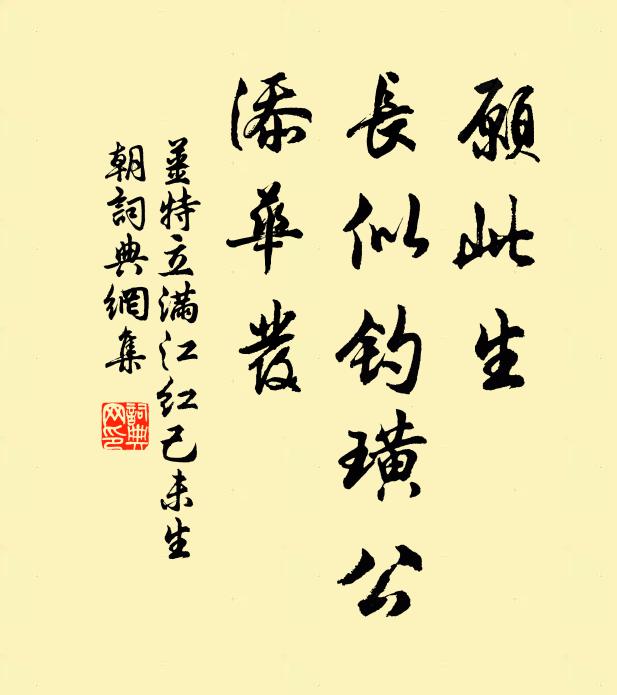 願此生
長似釣璜公
添華發
姜特立滿江紅己未生
朝詞典網集
詞典網印